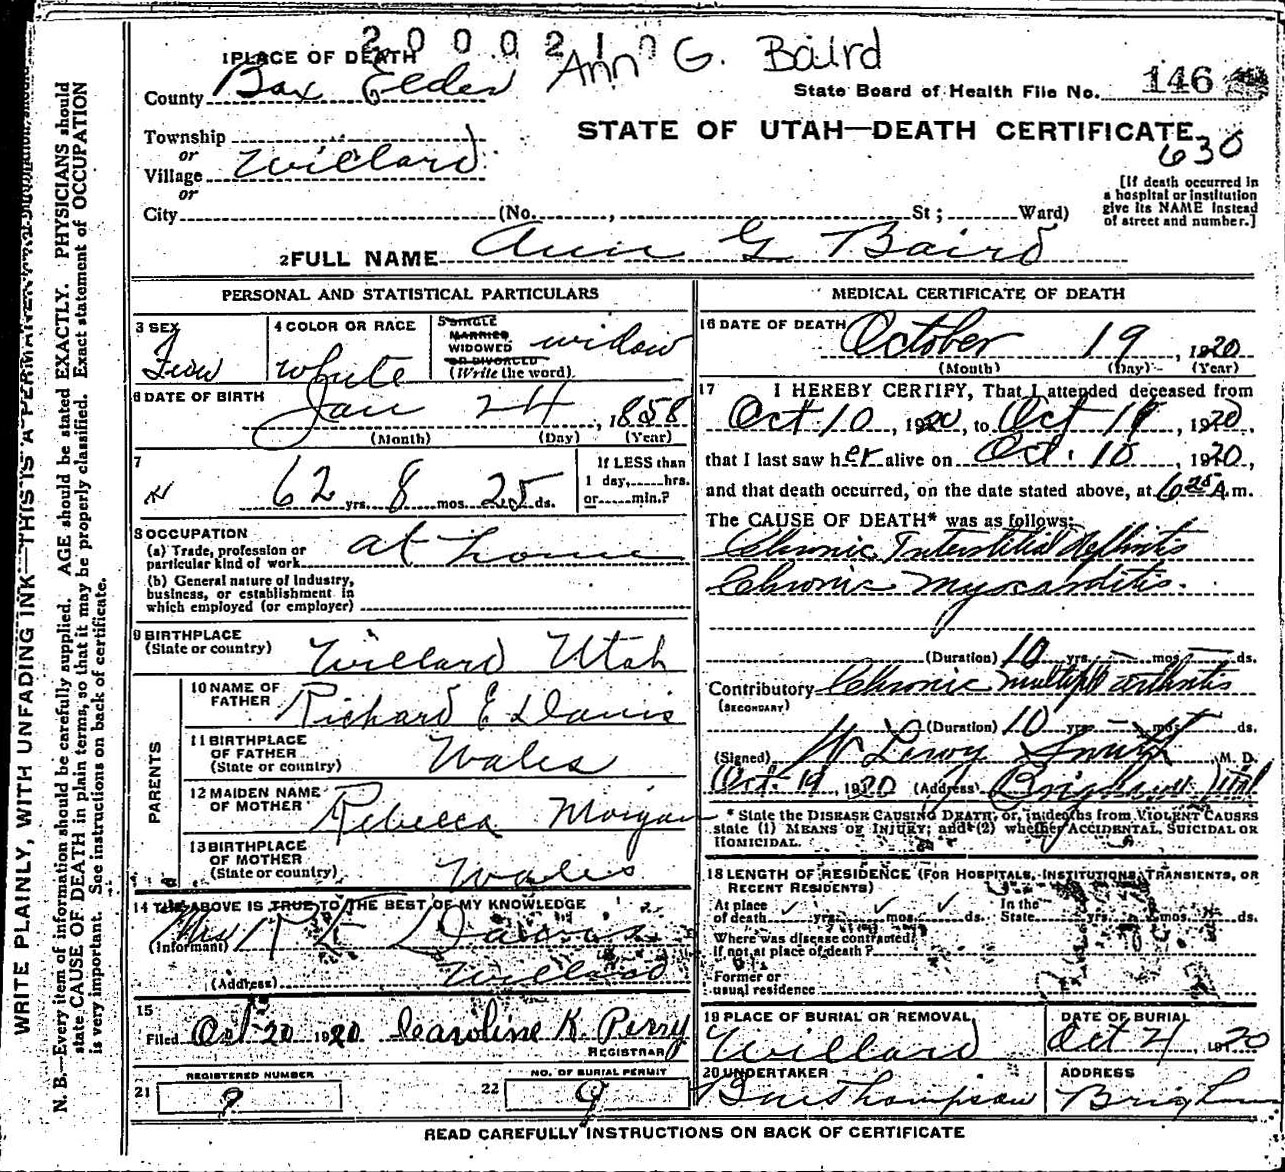 2000210
Ann G. Baird
1 PLACE OF DEATH
County Box Elder
State Board of Health File No. 146
Township
or
Village Willard
or
City (No. , St ; Ward)
STATE OF UTAH—DEATH CERTIFICATE
630
[If death occurred in
a hospital or institution
give its NAME instead
of street and number.]
2 FULL NAME Ann G Baird
PERSONAL AND STATISTICAL PARTICULARS
3 SEX
Fem
4 COLOR OR RACE
white
5 SINGLE
MARRIED
WIDOWED
OR DIVORCED
(Write the word).
widow
6 DATE OF BIRTH
Jan 24, 1858
(Month) (Day) (Year)
7
62 yrs. 8 mos. 25 ds.
If LESS than
1 day, hrs.
or min.?
8 OCCUPATION
(a) Trade, profession or
particular kind of work at home
(b) General nature of Industry,
business, or establishment in
which employed (or employer)
9 BIRTHPLACE
(State or country) Willard Utah
PARENTS
10 NAME OF
FATHER Richard E Davis
11 BIRTHPLACE
OF FATHER
(State or country) Wales
12 MAIDEN NAME
OF MOTHER Rebecca Morgan
13 BIRTHPLACE
OF MOTHER
(State or country) Wales
14 THE ABOVE IS TRUE TO THE BEST OF MY KNOWLEDGE
(Informant) Mrs R E Davis
(Address) Willard
15
Filed Oct 20 1920 Caroline K. Perry
REGISTRAR
REGISTERED NUMBER
21 9
NO. OF BURIAL PERMIT
22 9
MEDICAL CERTIFICATE OF DEATH
16 DATE OF DEATH
October 19, 1920
(Month) (Day) (Year)
17 I HEREBY CERTIFY, That I attended deceased from
Oct. 10, 1920, to Oct 19, 1920,
that I last saw her alive on Oct. 18, 1920,
and that death occurred, on the date stated above, at 6 25 A.m.
The CAUSE OF DEATH* was as follows:
Chronic Interstitial Nephritis
Chronic Myocarditis.
(Duration) 10 yrs. — mos. — ds.
Contributory Chronic multiple arthritis
(SECONDARY)
(Duration) 10 yrs. — mos. — ds.
(Signed) W Leroy Smith M. D.
Oct. 19, 1920 (Address) Brigham Utah
* State the DISEASE CAUSING DEATH, or, in deaths from VIOLENT CAUSES
state (1) MEANS OF INJURY; and (2) whether ACCIDENTAL, SUICIDAL OR
HOMICIDAL.
18 LENGTH OF RESIDENCE (FOR HOSPITALS, INSTITUTIONS, TRANSIENTS, OR
RECENT RESIDENTS)
At place In the
of death yrs. mos. ds. State yrs. mos. ds.
Where was disease contracted?
If not at place of death?
Former or
usual residence
19 PLACE OF BURIAL OR REMOVAL
Willard
DATE OF BURIAL
Oct 21, 1920
20 UNDERTAKER
Thompson
ADDRESS
Brigham
READ CAREFULLY INSTRUCTIONS ON BACK OF CERTIFICATE
WRITE PLAINLY, WITH UNFADING INK—THIS IS A PERMANENT
N. B.—Every item of information should be carefully supplied. AGE should be stated EXACTLY. PHYSICIANS should
state CAUSE OF DEATH in plain terms, so that it may be properly classified. Exact statement of OCCUPATION
is very important. See instructions on back of certificate.